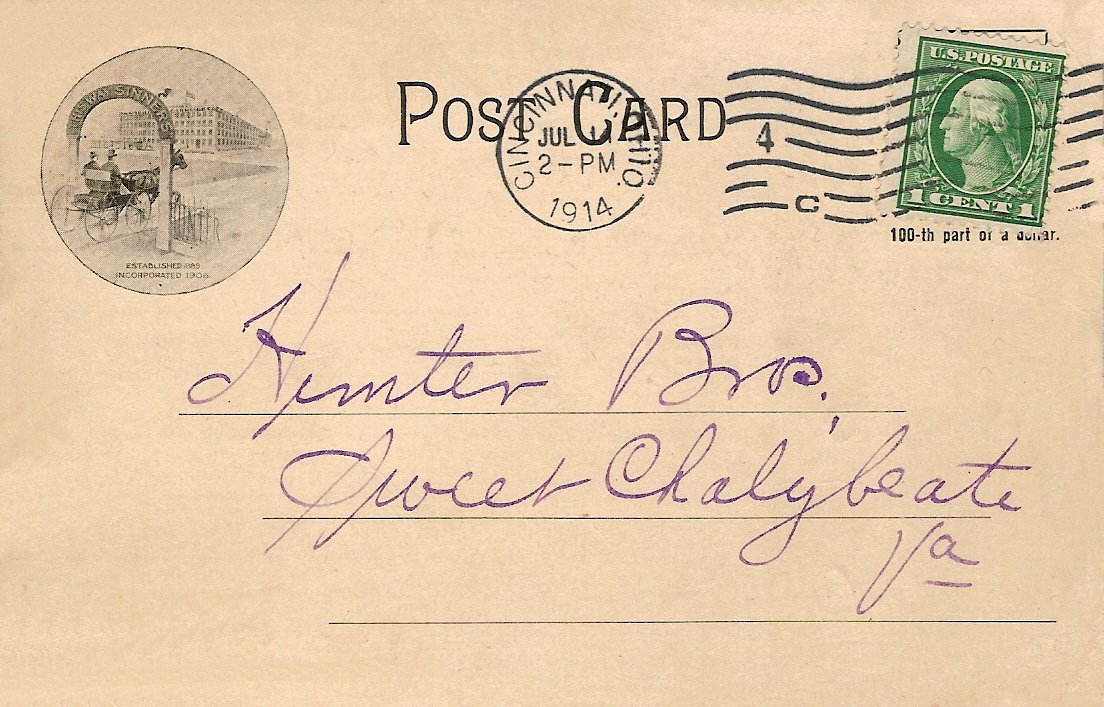 WAY SINNERS
ESTABLISHED
INCORPORATED 1906.
POST CARD
CINCINNATI, OHIO.
JUL 11
2-PM
1914
4
C
U.S. POSTAGE
1 CENT 1
100-th part of a dollar.
Hunter Bros,
Sweet Chalybeate
Va